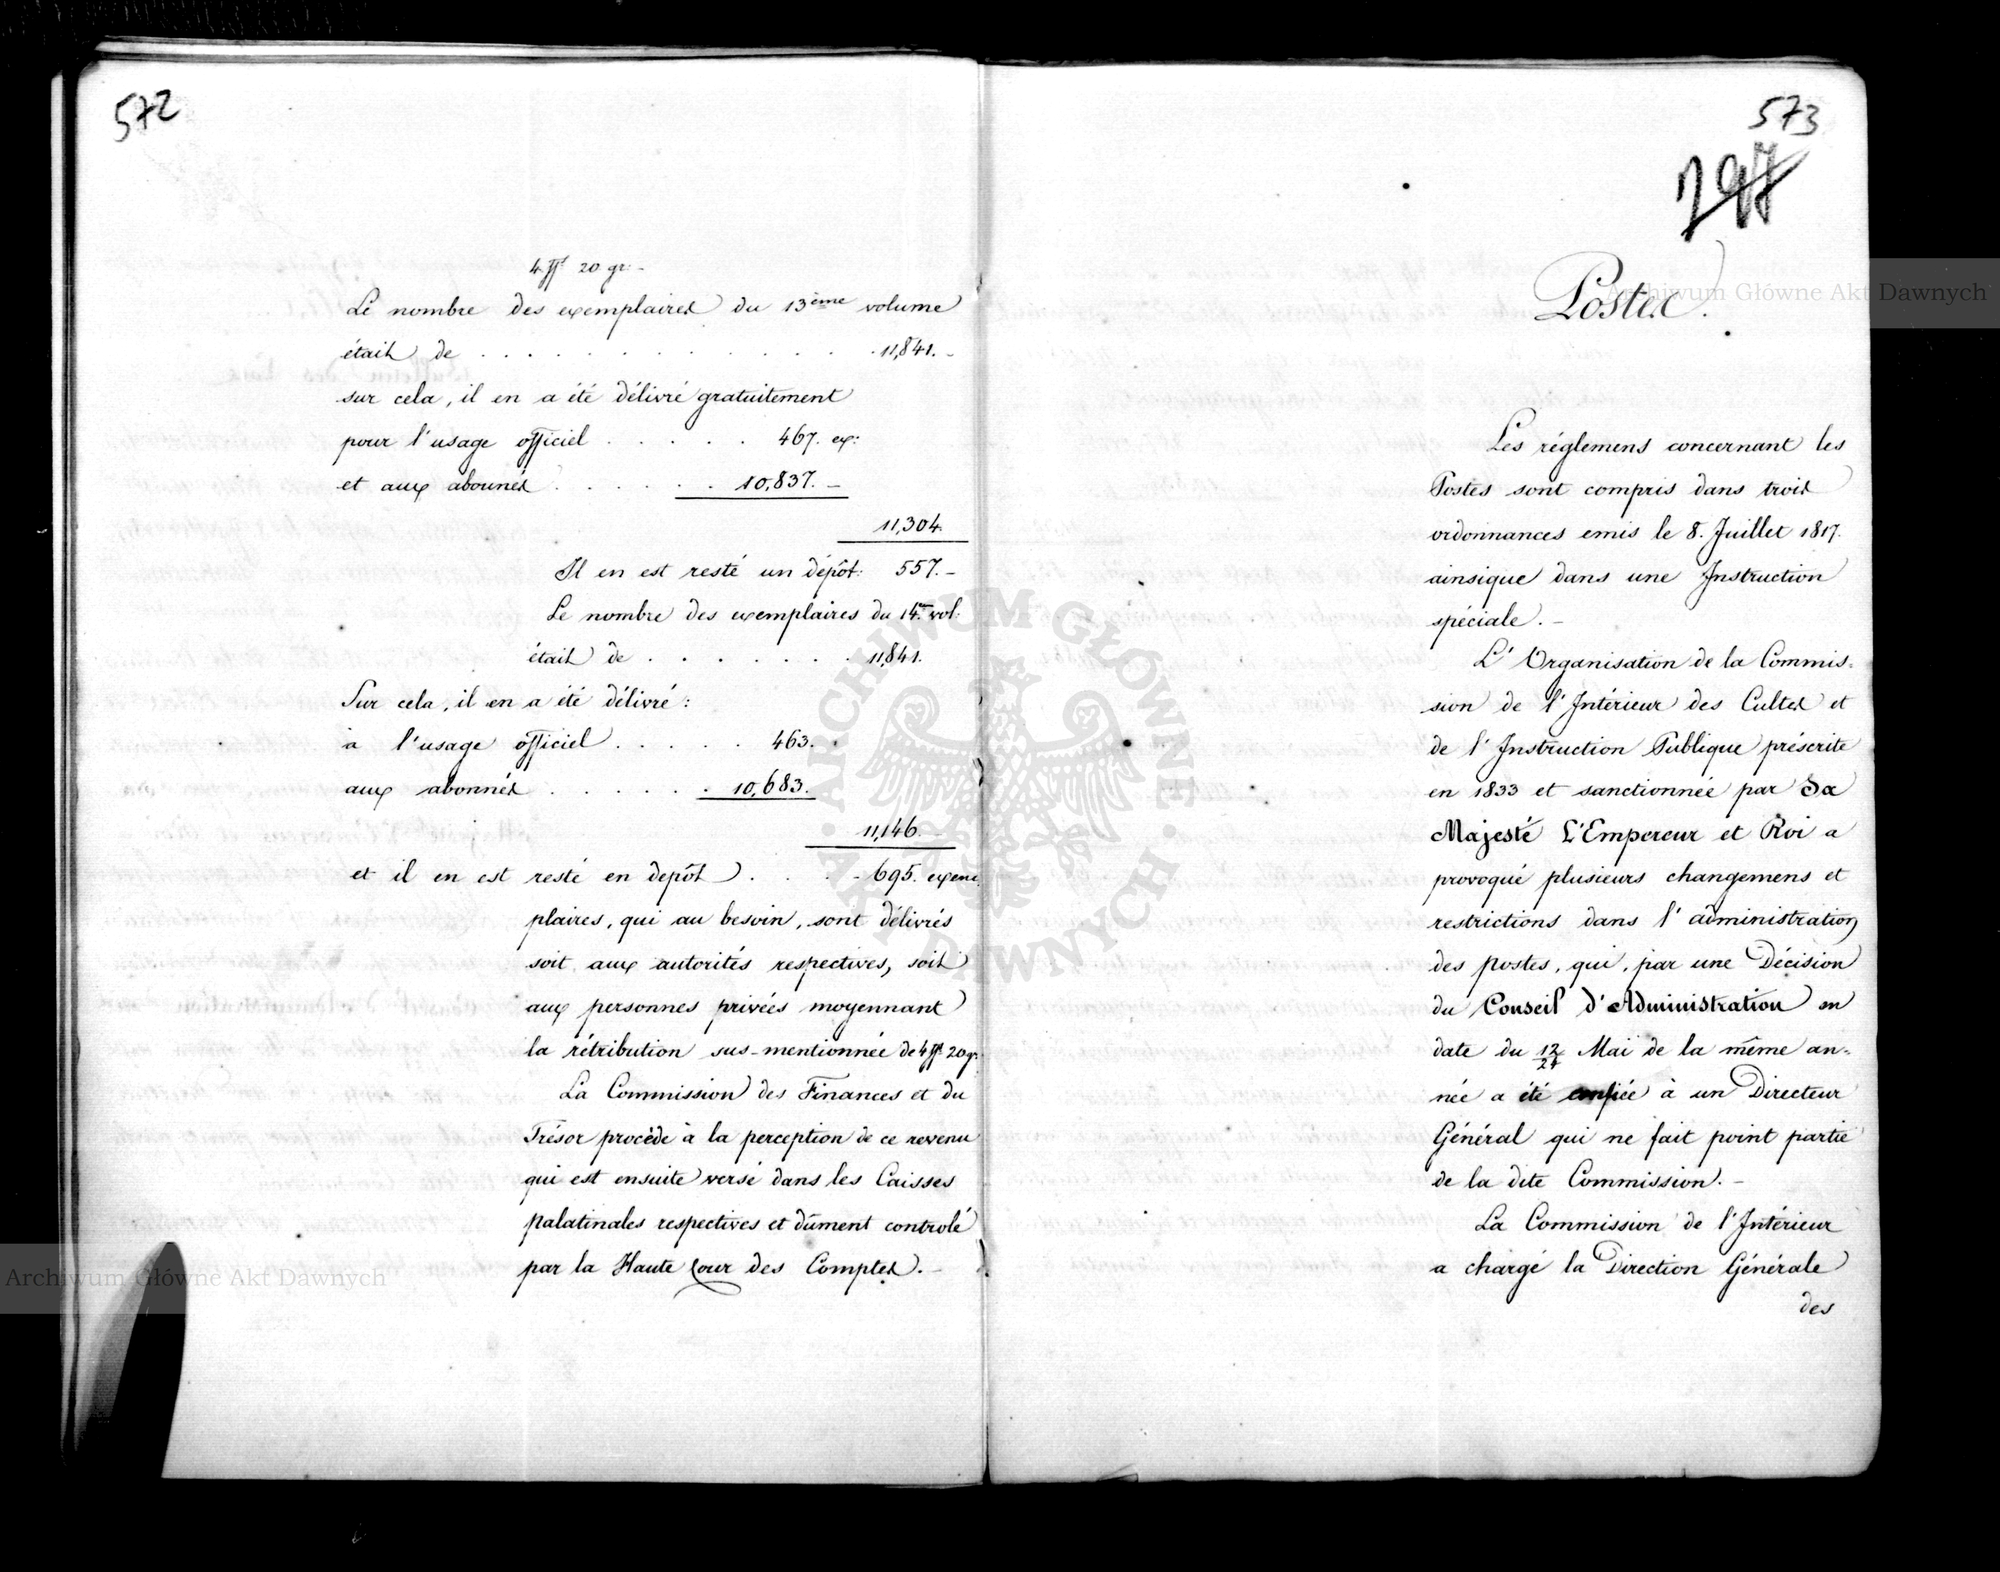 572
4 fl 20 gr. -
Le nombre des exemplaires du 13ème volume
était de . . . . . . . . . . 11,841. -
sur cela, il en a été délivré gratuitement
pour l'usage officiel . . . . . 467. ex:
et aux abonnés . . . . . . 10,837. -
11,304.
Il en est resté un dépôt: 557. -
Le nombre des exemplaires du 14me vol:
était de . . . . . . . 11,841.
Sur cela, il en a été délivré:
à l'usage officiel . . . . . 463.
aux abonnés . . . . . . 10,683.
11,146. -
et il en est resté en depôt . . . - 695. exem
plaires, qui au besoin, sont délivrés
soit aux autorités respectives, soit
aux personnes privées moyennant
la rétribution sus-mentionnée de 4 fl 20 gr.
La Commission des Finances et du
Trésor procède à la perception de ce revenu
qui est ensuite versé dans les Caisses
palatinales respectives et dûment controlé
par la Haute Cour des Comptes. -
573
297
Postes.
Les réglemens concernant les
Postes sont compris dans trois
ordonnances emis le 8. Juillet 1817.
ainsique dans une Instruction
spéciale. -
L'Organisation de la Commis-
sion de l'Intérieur des Cultes et
de l'Instruction Publique préscrite
en 1833 et sanctionnée par Sa
Majesté L'Empereur et Roi a
provoqué plusieurs changemens et
restrictions dans l'administration
des postes, qui, par une Décision
du Conseil d'Administration en
date du 12/24 Mai de la même an-
née a été confiée à un Directeur
Général qui ne fait point partie
de la dite Commission. -
La Commission de l'Intérieur
a chargé la Direction Générale
des
Archiwum Główne Akt Dawnych
Archiwum Główne Akt Dawnych
ARCHIWUM GŁÓWNE AKT DAWNYCH